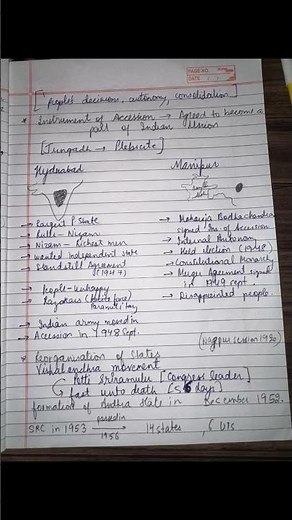 PAGE NO.
DATE
[people's decision, autonomy, consolidation]
* Instrument of Accession → Agreed to become a
part of Indian Union
[Junagadh → Plebiscite]
Hyderabad
Manipur
→ Largest P. State
→ Nizam → Richest man
→ Wanted Independent state
→ Standstill Agreement
(1947)
→ People - unhappy
→ Razakars
→ Indian army moved in
→ Accession in 1948 Sept.
→ Maharaja Bodhachandra
signed Ins. of Accession
→ Internal Autonomy
→ Held election (1948)
→ Constitutional Monarchy
→ Merger Agreement signed
in 1949 sept.
→ Disappointed people.
(Nagpur session 1920)
* Reorganisation of States
Vishalandhra movement
Potti Sriramulu [Congress leader]
→ fast unto death [56 days]
formation of Andhra State in December 1952.
SRC in 1953 passed in 1956 → 14 states, 6 UTs